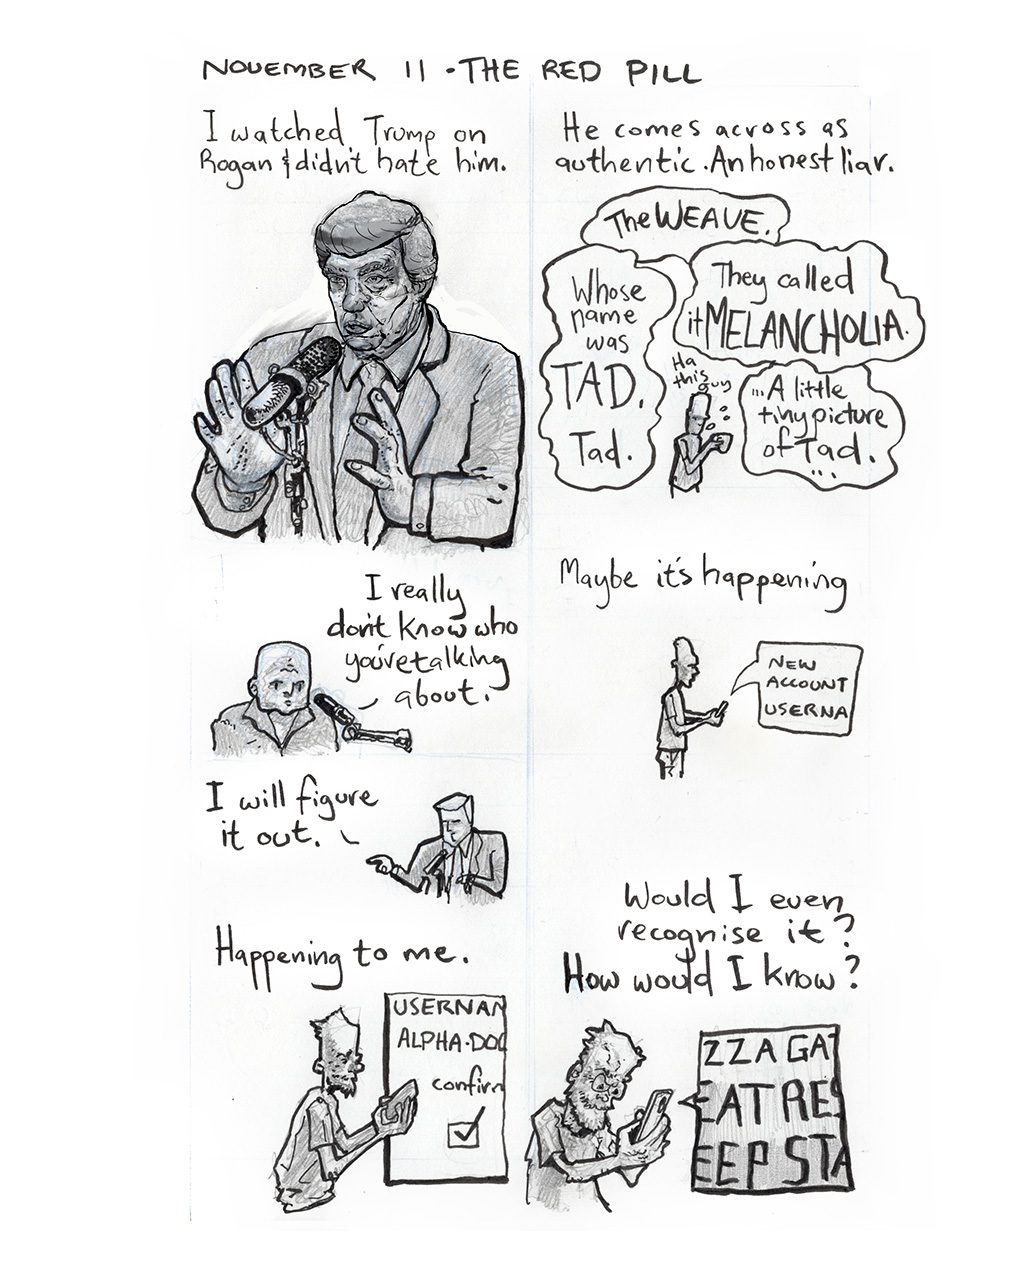 NOVEMBER 11 · THE RED PILL
I watched Trump on
Rogan & didn't hate him.
He comes across as
authentic. An honest liar.
The WEAVE.
They called
it MELANCHOLIA.
Whose
name
was
TAD.
Tad.
Ha
this
guy
...A little
tiny picture
of Tad.
...
I really
don't know who
you're talking
about.
I will figure
it out.
Maybe it's happening
NEW
ACCOUNT
USERNA
Happening to me.
USERNAM
ALPHA·DOG
confirm
Would I even
recognise it?
How would I know?
ZZA GAT
EAT RES
EEP STA